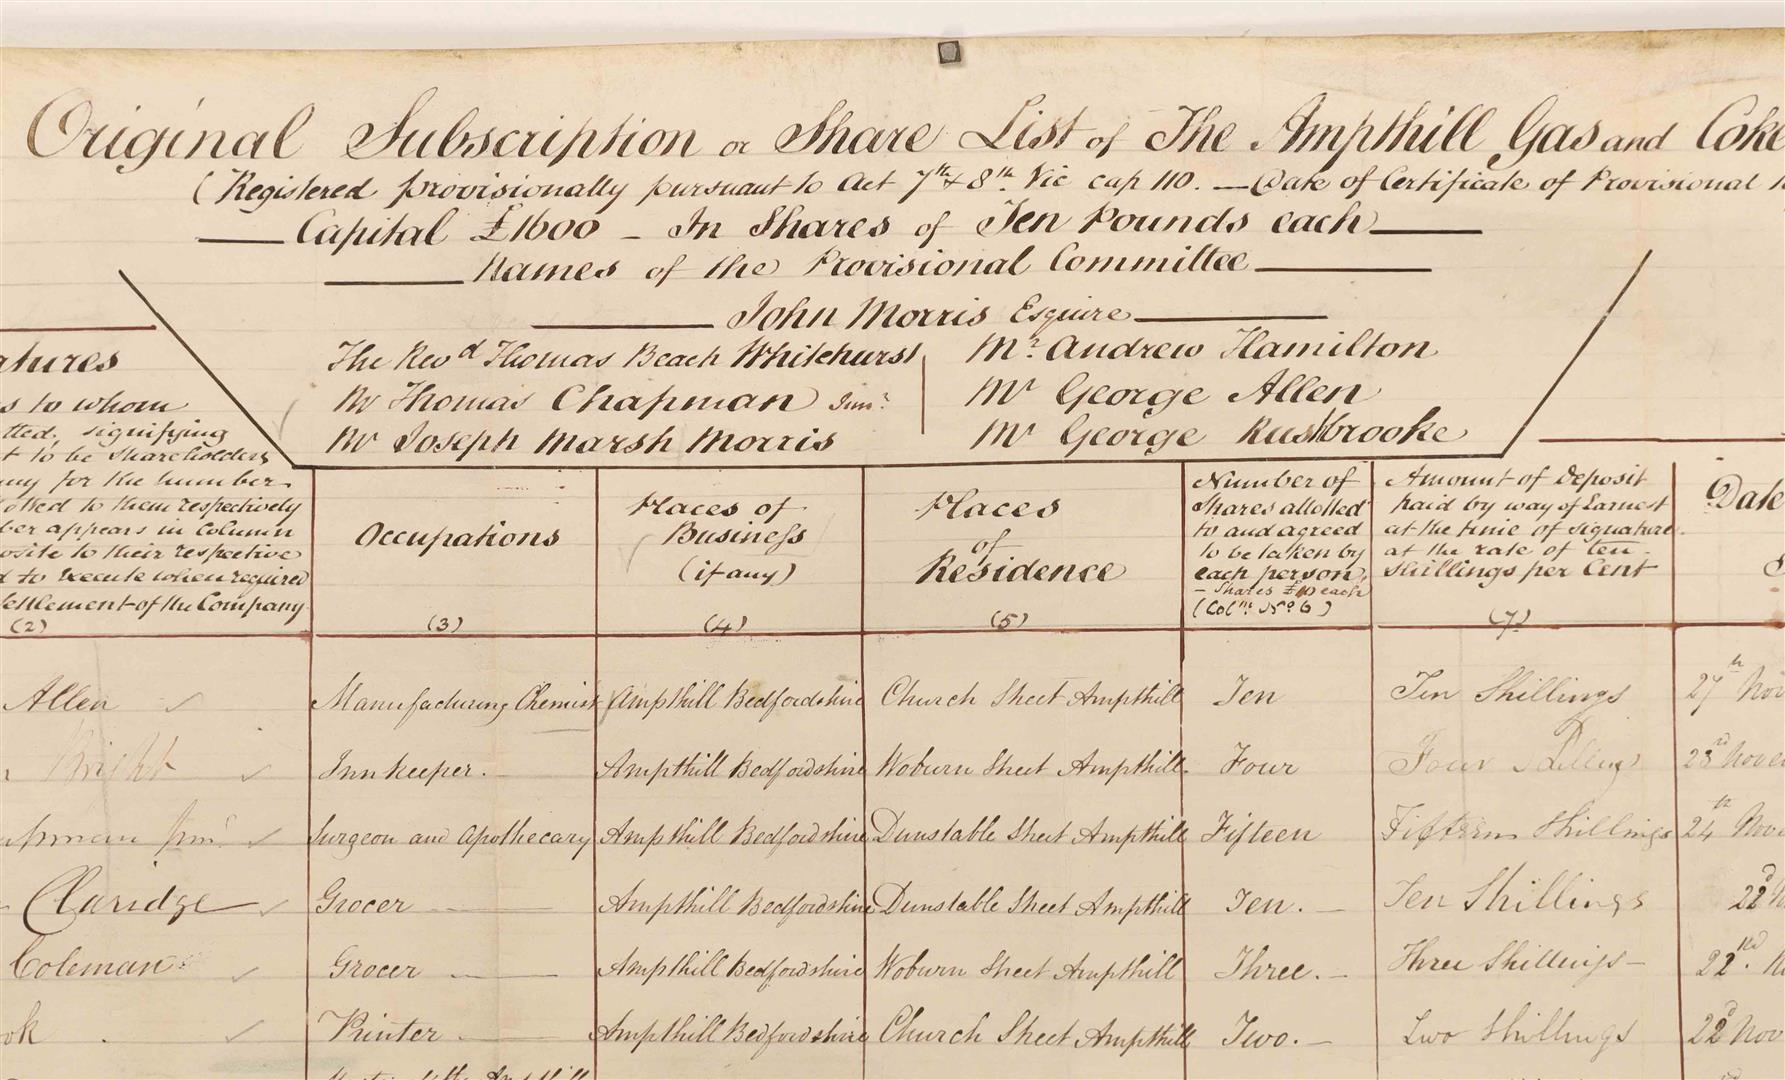 Original Subscription or Share List of The Ampthill Gas and Coke
(Registered provisionally pursuant to Act 7th & 8th Vic cap 110. — Date of Certificate of Provisional
Capital £1600 - In Shares of Ten Pounds each
Names of the Provisional Committee
John Morris Esquire
The Revd Thomas Beach Whitehurst
Mr Thomas Chapman Junr
Mr Joseph Marsh Morris
Mr Andrew Hamilton
Mr George Allen
Mr George Rushbrooke
atures
s to whom
tted, signifying
t to be Shareholders
any for the number
otted to them respectively
ber appears in Column
osite to their respective
d to execute when required
Settlement of the Company
(2)
Occupations
(3)
Places of
Business
(if any)
(4)
Places
of
Residence
(5)
Number of
Shares allotted
to and agreed
to be taken by
each person,
- Shares £10 each
(Colmn No 6)
Amount of Deposit
paid by way of Earnest
at the time of signature
at the rate of ten
Shillings per Cent
(7)
Date
Allen Manufacturing Chemist Ampthill Bedfordshire Church Street Ampthill Ten Ten Shillings 27th Nov
Bright Innkeeper. Ampthill Bedfordshire Woburn Street Ampthill. Four Four Shillings 23rd Nove
apman Junr Surgeon and Apothecary Ampthill Bedfordshire Dunstable Street Ampthill Fifteen Fifteen Shillings 24th Nove
Claridge Grocer Ampthill Bedfordshire Dunstable Street Ampthill Ten. Ten Shillings 22d N
Coleman Grocer Ampthill Bedfordshire Woburn Street Ampthill Three. Three Shillings 22nd. N
ok Printer Ampthill Bedfordshire Church Street Ampthill Two. Two Shillings 22d Nov